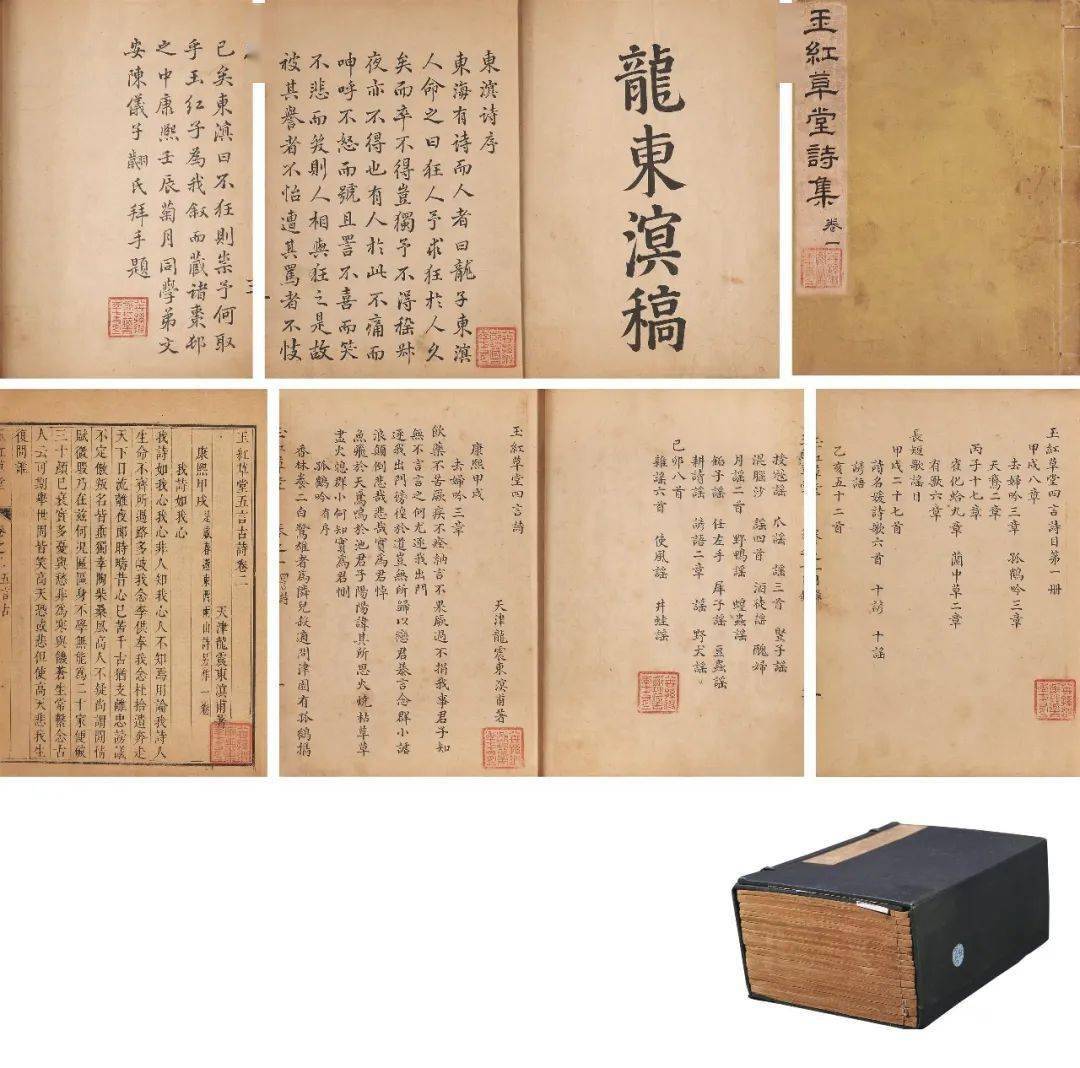 玉紅草堂詩集 卷一
龍東溟稿
東溟诗序
東海有诗而人者曰龍子東溟
人命之曰狂人予求狂於人久
矣而卒不得豈獨予不得
夜亦不得也有人於此不痛而
呻呼不怒而號且詈不喜而笑
不悲而笑則人相與狂之是故
被其譽者不怡遭其罵者不忮
已矣東溟曰不狂則祟予何取
乎玉紅子為我叙而藏诸棗邨
之中康熙壬辰菊月同學弟文
安陳儀子翽氏拜手題
玉紅草堂四言詩目第一册
甲戌八章
去婦吟三章 孤鶴吟三章
二章
丙子十七章
九章 蘭中草二章
有歎六章
長短歌謡目
甲戌二十七首
詩名媛詩歌六首 十諺 十謡
諺語
乙亥五十二首
謡 爪謡 謡三首 豎子謡
混腦沙 謡四首 酒徒謡
月謡二首 野鴨謡 蟲謡 醜婦
子謡 任左手 犀子謡 豆蟲謡
耕請謡 諺語二章 謡 野犬謡
己卯八首
雜謡六首 使風謡 井蛙謡
玉紅草堂四言詩
天津龍震東溟甫著
康熙甲戌
去婦吟三章
飲藥不苦厥疾不痊納言不果厥過不捐我事君子知
無不言言之何尤逐我出門
逐我出門徬徨於道豈無所歸以戀君暮言念群小謠
浪顛倒悲哉悲哉實爲君悼
魚飛於天鴈鳴於池君子陽陽諱其所思火燒枯草草
盡火熄群小何知實爲君惻
孤鶴吟有序
香林卷二白鶩雄者爲隣兒所適問津園有孤鶴
玉紅草堂五言古詩卷二
天津龍震東溟甫著
康熙甲戌 是歲春遊東西兩山詩另作一卷
我詩如我心
我詩如我心我心非人知我心人不知焉用論我詩人
生命不齊所遇路多歧我念李供奉我念杜拾遺奔走
天下日流離夜郎時時昔心已苦千古猶支離忠謗議
不定傲叛名皆垂獨幸陶柴桑風高人不疑尚謂閒情
賦微瑕乃在茲何况區區身不學無能爲二十家便破
三十顏已衰賓多憂與愁非爲寒與饑蒼生常繫念古
人云可期舉世閒皆笑高天恐或悲但使高天悲我生
復問誰